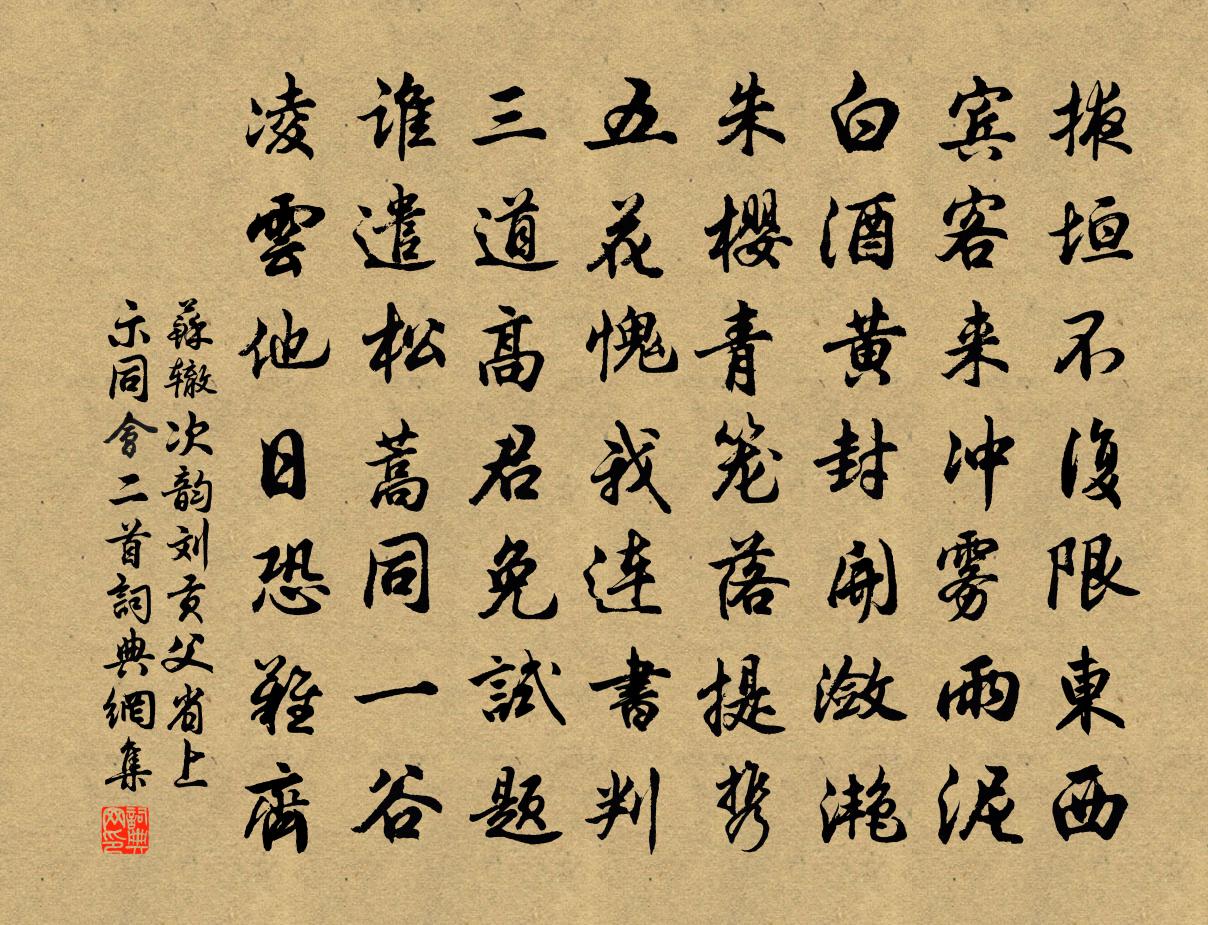 掖垣不復限東西
宾客来冲雾雨泥
白酒黄封開潋滟
朱櫻青笼落提携
五花愧我连書判
三道高君免試题
谁遣松蒿同一谷
凌雲他日恐難齊
蘇辙次韵刘贡父省上
示同會二首詞典網集
詞典
网印